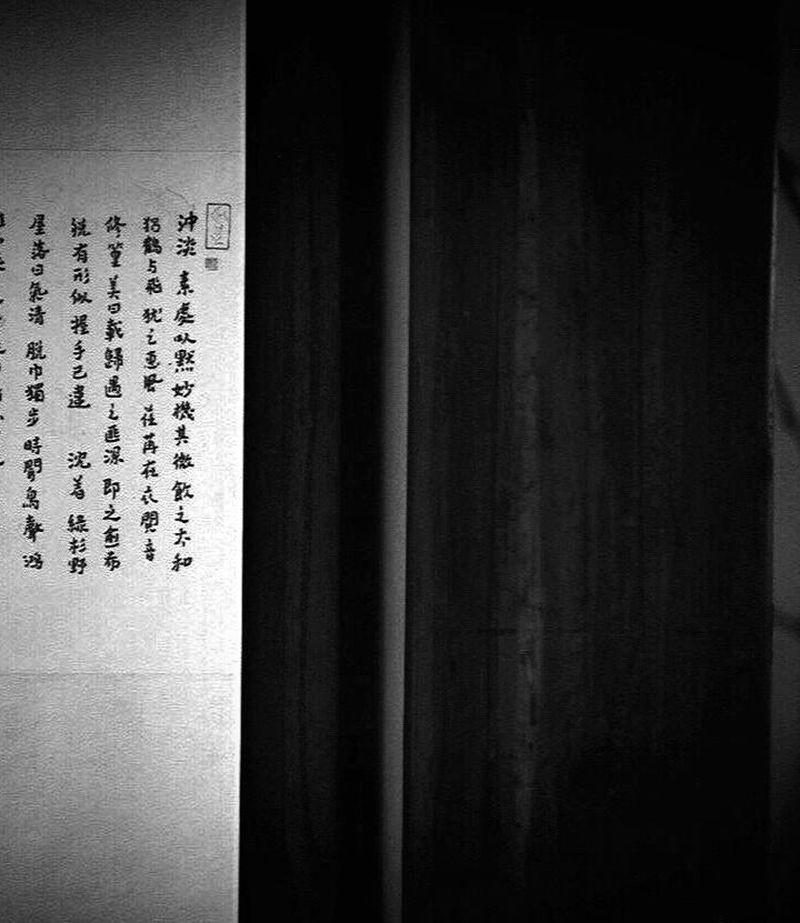 沖淡 素處以默妙機其微飲之太和
獨鶴与飛猶之惠風荏苒在衣閱音
修篁美曰載歸遇之匪深即之愈希
脱有形似握手已違 沈着 綠杉野
屋落日氣清脱巾獨步時聞鳥聲鴻